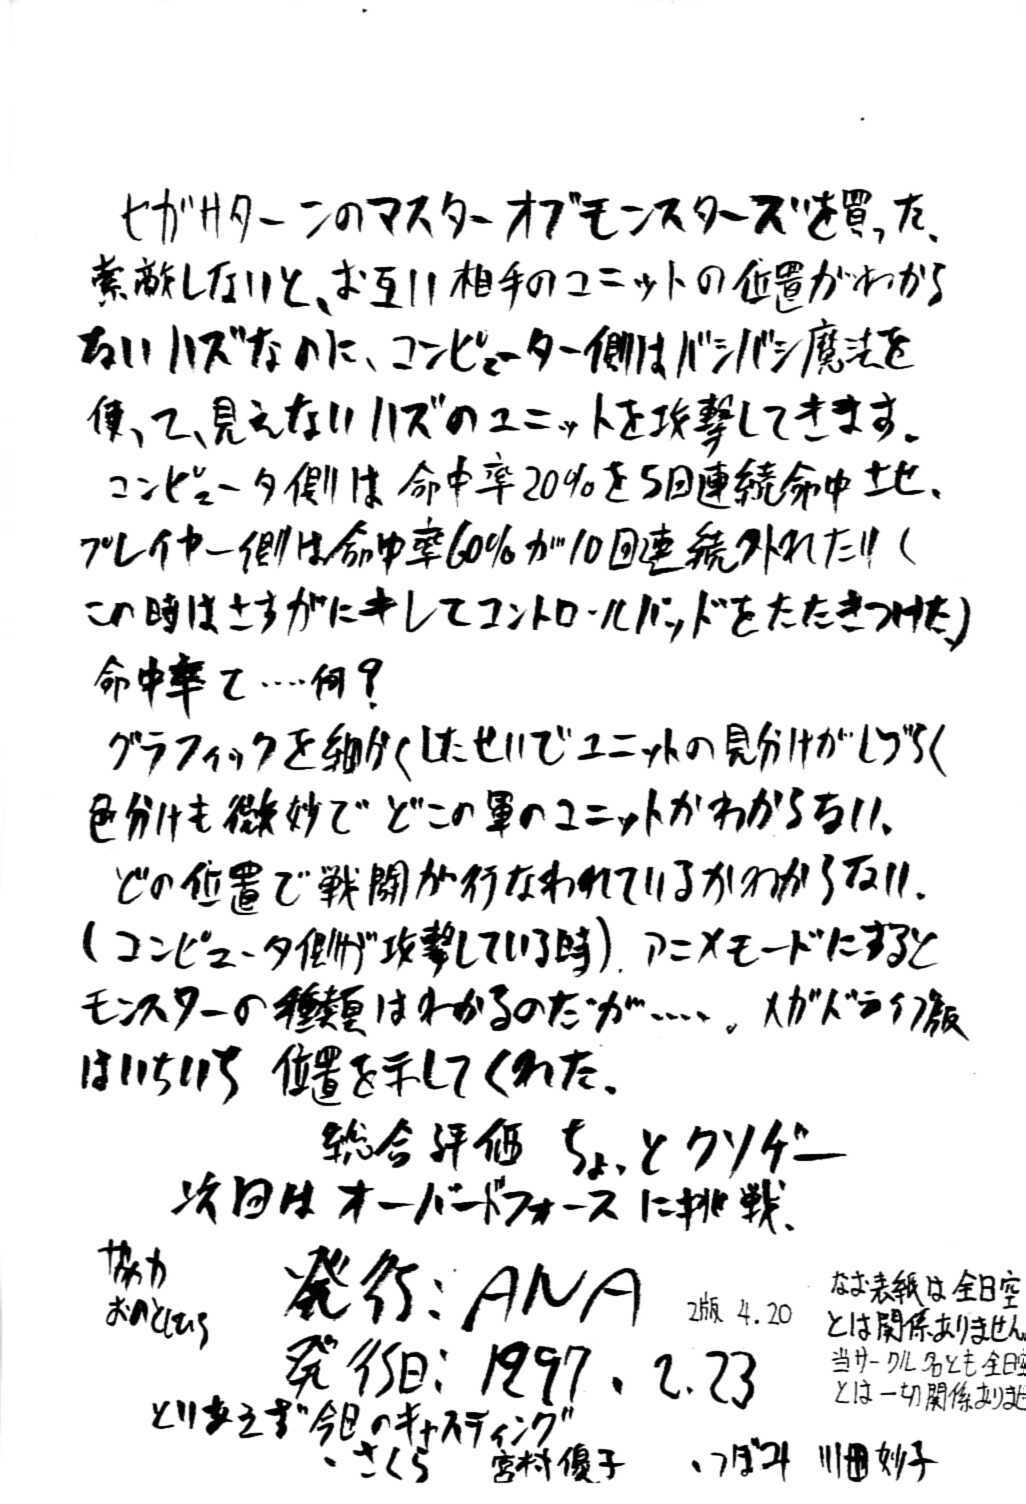 セガサターンのマスターオブモンスターズを買った、
索敵しないと、お互い相手のユニットの位置がわから
ないハズなのに、コンピューター側はバシバシ魔法を
使って、見えないハズのユニットを攻撃してきます。
コンピュータ側は命中率20%を5回連続命中させ、
プレイヤー側は命中率60%が10回連続外れたり(
この時はさすがにキレてコントロールパッドをたたきつけた)
命中率て‥‥何?
グラフィックを細かくしたせいでユニットの見分けがしづらく
色分けも微妙でどこの軍のユニットかわからない、
どの位置で戦闘が行なわれているかわからない、
(コンピュータ側が攻撃している時)、アニメモードにすると
モンスターの種類はわかるのだが‥‥、。メガドライブ版
はいちいち位置を示してくれた、
総合評価 ちょっとクソゲー
次回はオーバードフォースに挑戦、
協力
おのとしひろ
発行:ANA
2版 4.20
発行日:1997.2.23
なお表紙は全日空
とは関係ありません。
当サークル名とも全日空
とは一切関係ありませ
とりあえず"今日のキャスティング"
・さくら 宮村優子 ・つぼみ 川田妙子